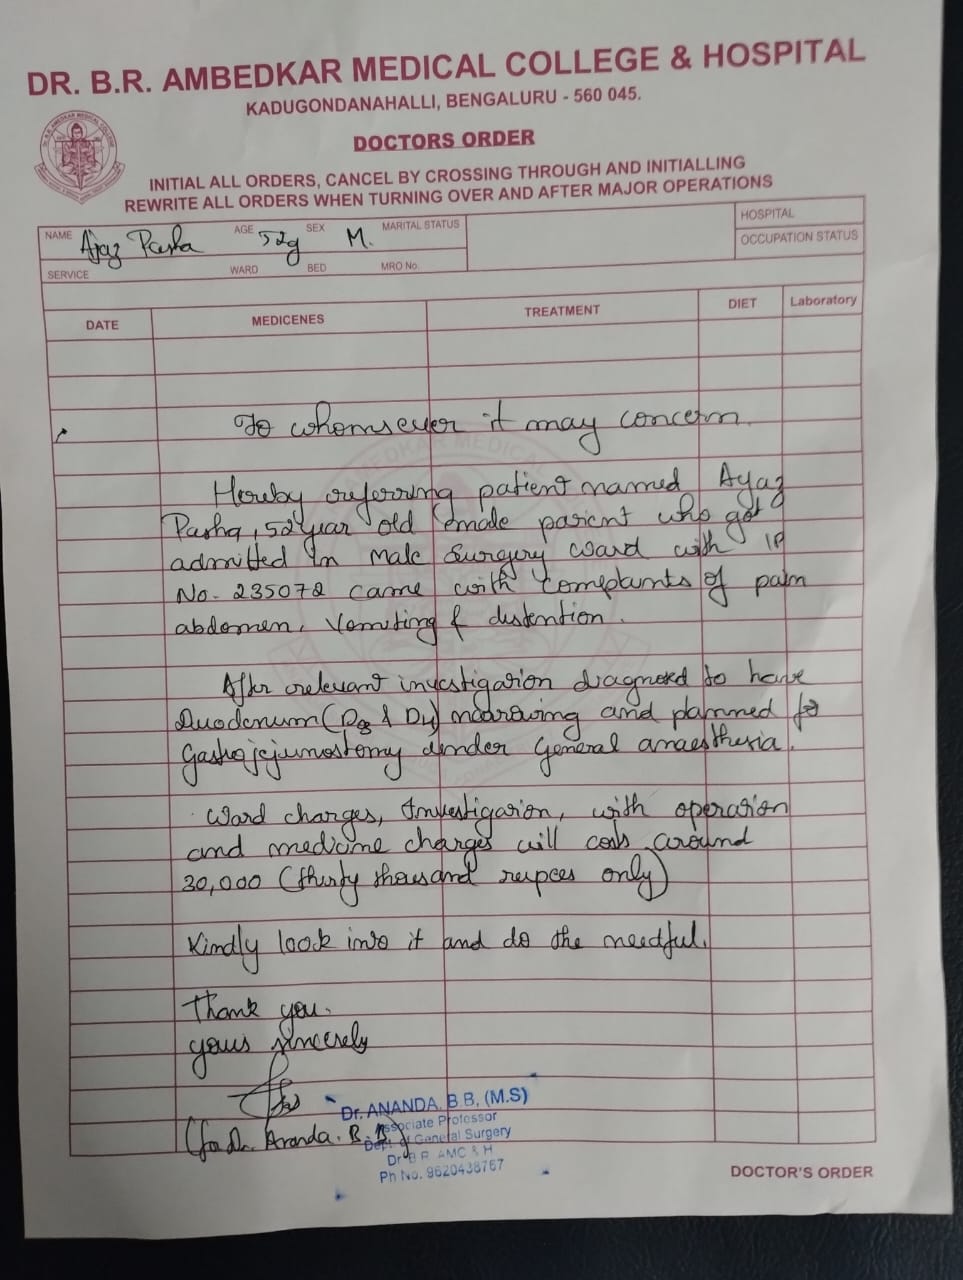 DR. B.R. AMBEDKAR MEDICAL COLLEGE & HOSPITAL
KADUGONDANAHALLI, BENGALURU - 560 045.
DOCTORS ORDER
INITIAL ALL ORDERS, CANCEL BY CROSSING THROUGH AND INITIALLING
REWRITE ALL ORDERS WHEN TURNING OVER AND AFTER MAJOR OPERATIONS
NAME Ajaz Pasha AGE 52y SEX M. MARITAL STATUS
HOSPITAL
OCCUPATION STATUS
SERVICE WARD BED MRO No.
DATE MEDICENES TREATMENT DIET Laboratory
To whomsever it may concern.
Hereby referring patient named Ayaz
Pasha, 52 year old male patient who got
admitted in Male Surgery ward with IP
No. 235072 came with complaints of pain
abdomen, Vomiting & distention.
After relevant investigation diagnosed to have
Duodenum (D3 & D4) and planned for
Gastrojejunostomy under General anaesthesia.
Ward charges, Investigation, with operation
and medicine charges will cost around
30,000 (thirty thousand rupees only)
Kindly look into it and do the needful.
Thank you.
yours sincerely
(for Dr. Ananda. B. B)
Dr. ANANDA. B B, (M.S)
Associate Professor
Dept. of General Surgery
Dr B R AMC & H
Ph No. 9620438767
DOCTOR'S ORDER